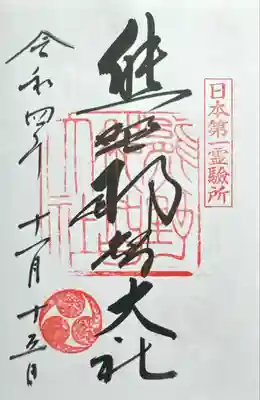 日本第一霊験所
熊野那智大社
令和四年十一月十五日